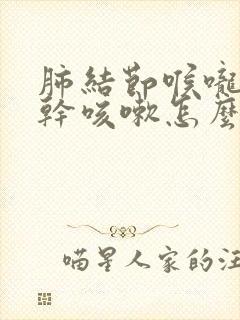 肺結節喉嚨
幹咳嗽怎麼
喵星人家的汪